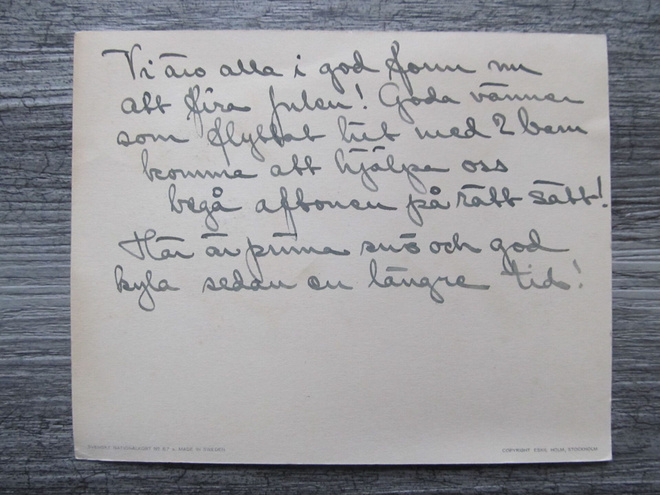 Vi äro alla i god form nu
att fira julen! Goda vänner
som flyttat hit med 2 barn
komma att hjälpa oss
begå aftonen på rätt sätt!
Här är prima snö och god
kyla sedan en längre tid!
MADE IN SWEDEN
COPYRIGHT STOCKHOLM